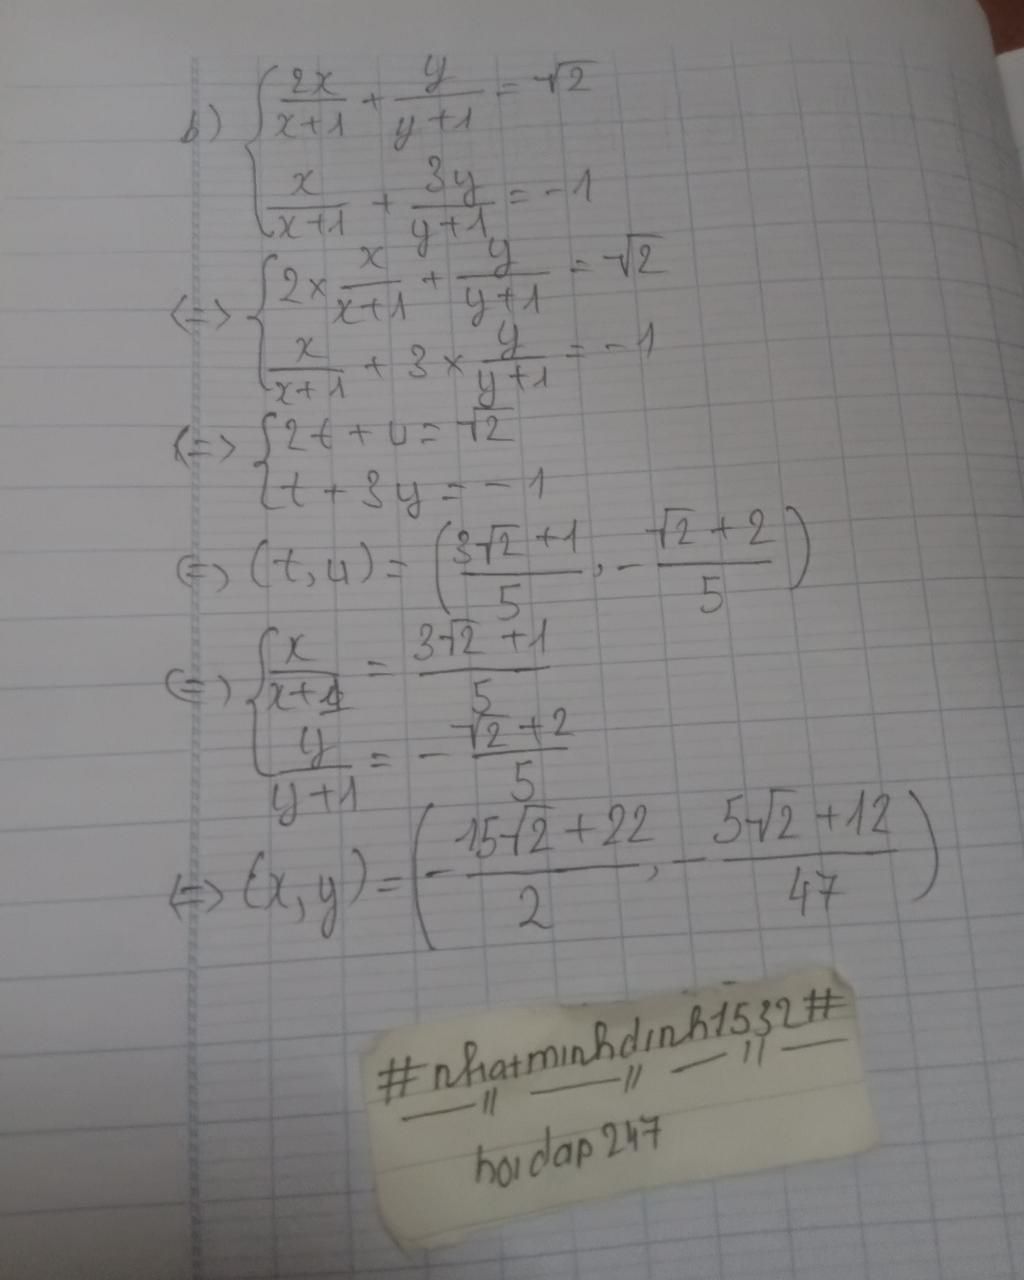 b) { 2x/(x+1) + y/(y+1) = √2
x/(x+1) + 3y/(y+1) = -1
<=> { 2 × x/(x+1) + y/(y+1) = √2
x/(x+1) + 3 × y/(y+1) = -1
<=> { 2t + u = √2
t + 3y = -1
<=> (t, u) = ( (3√2 + 1)/5 , - (√2 + 2)/5 )
<=> { x/(x+1) = (3√2 + 1)/5
y/(y+1) = - (√2 + 2)/5
<=> (x, y) = ( - (15√2 + 22)/2 , - (5√2 + 12)/47 )
#nhatminhdinh1532#
hoidap247